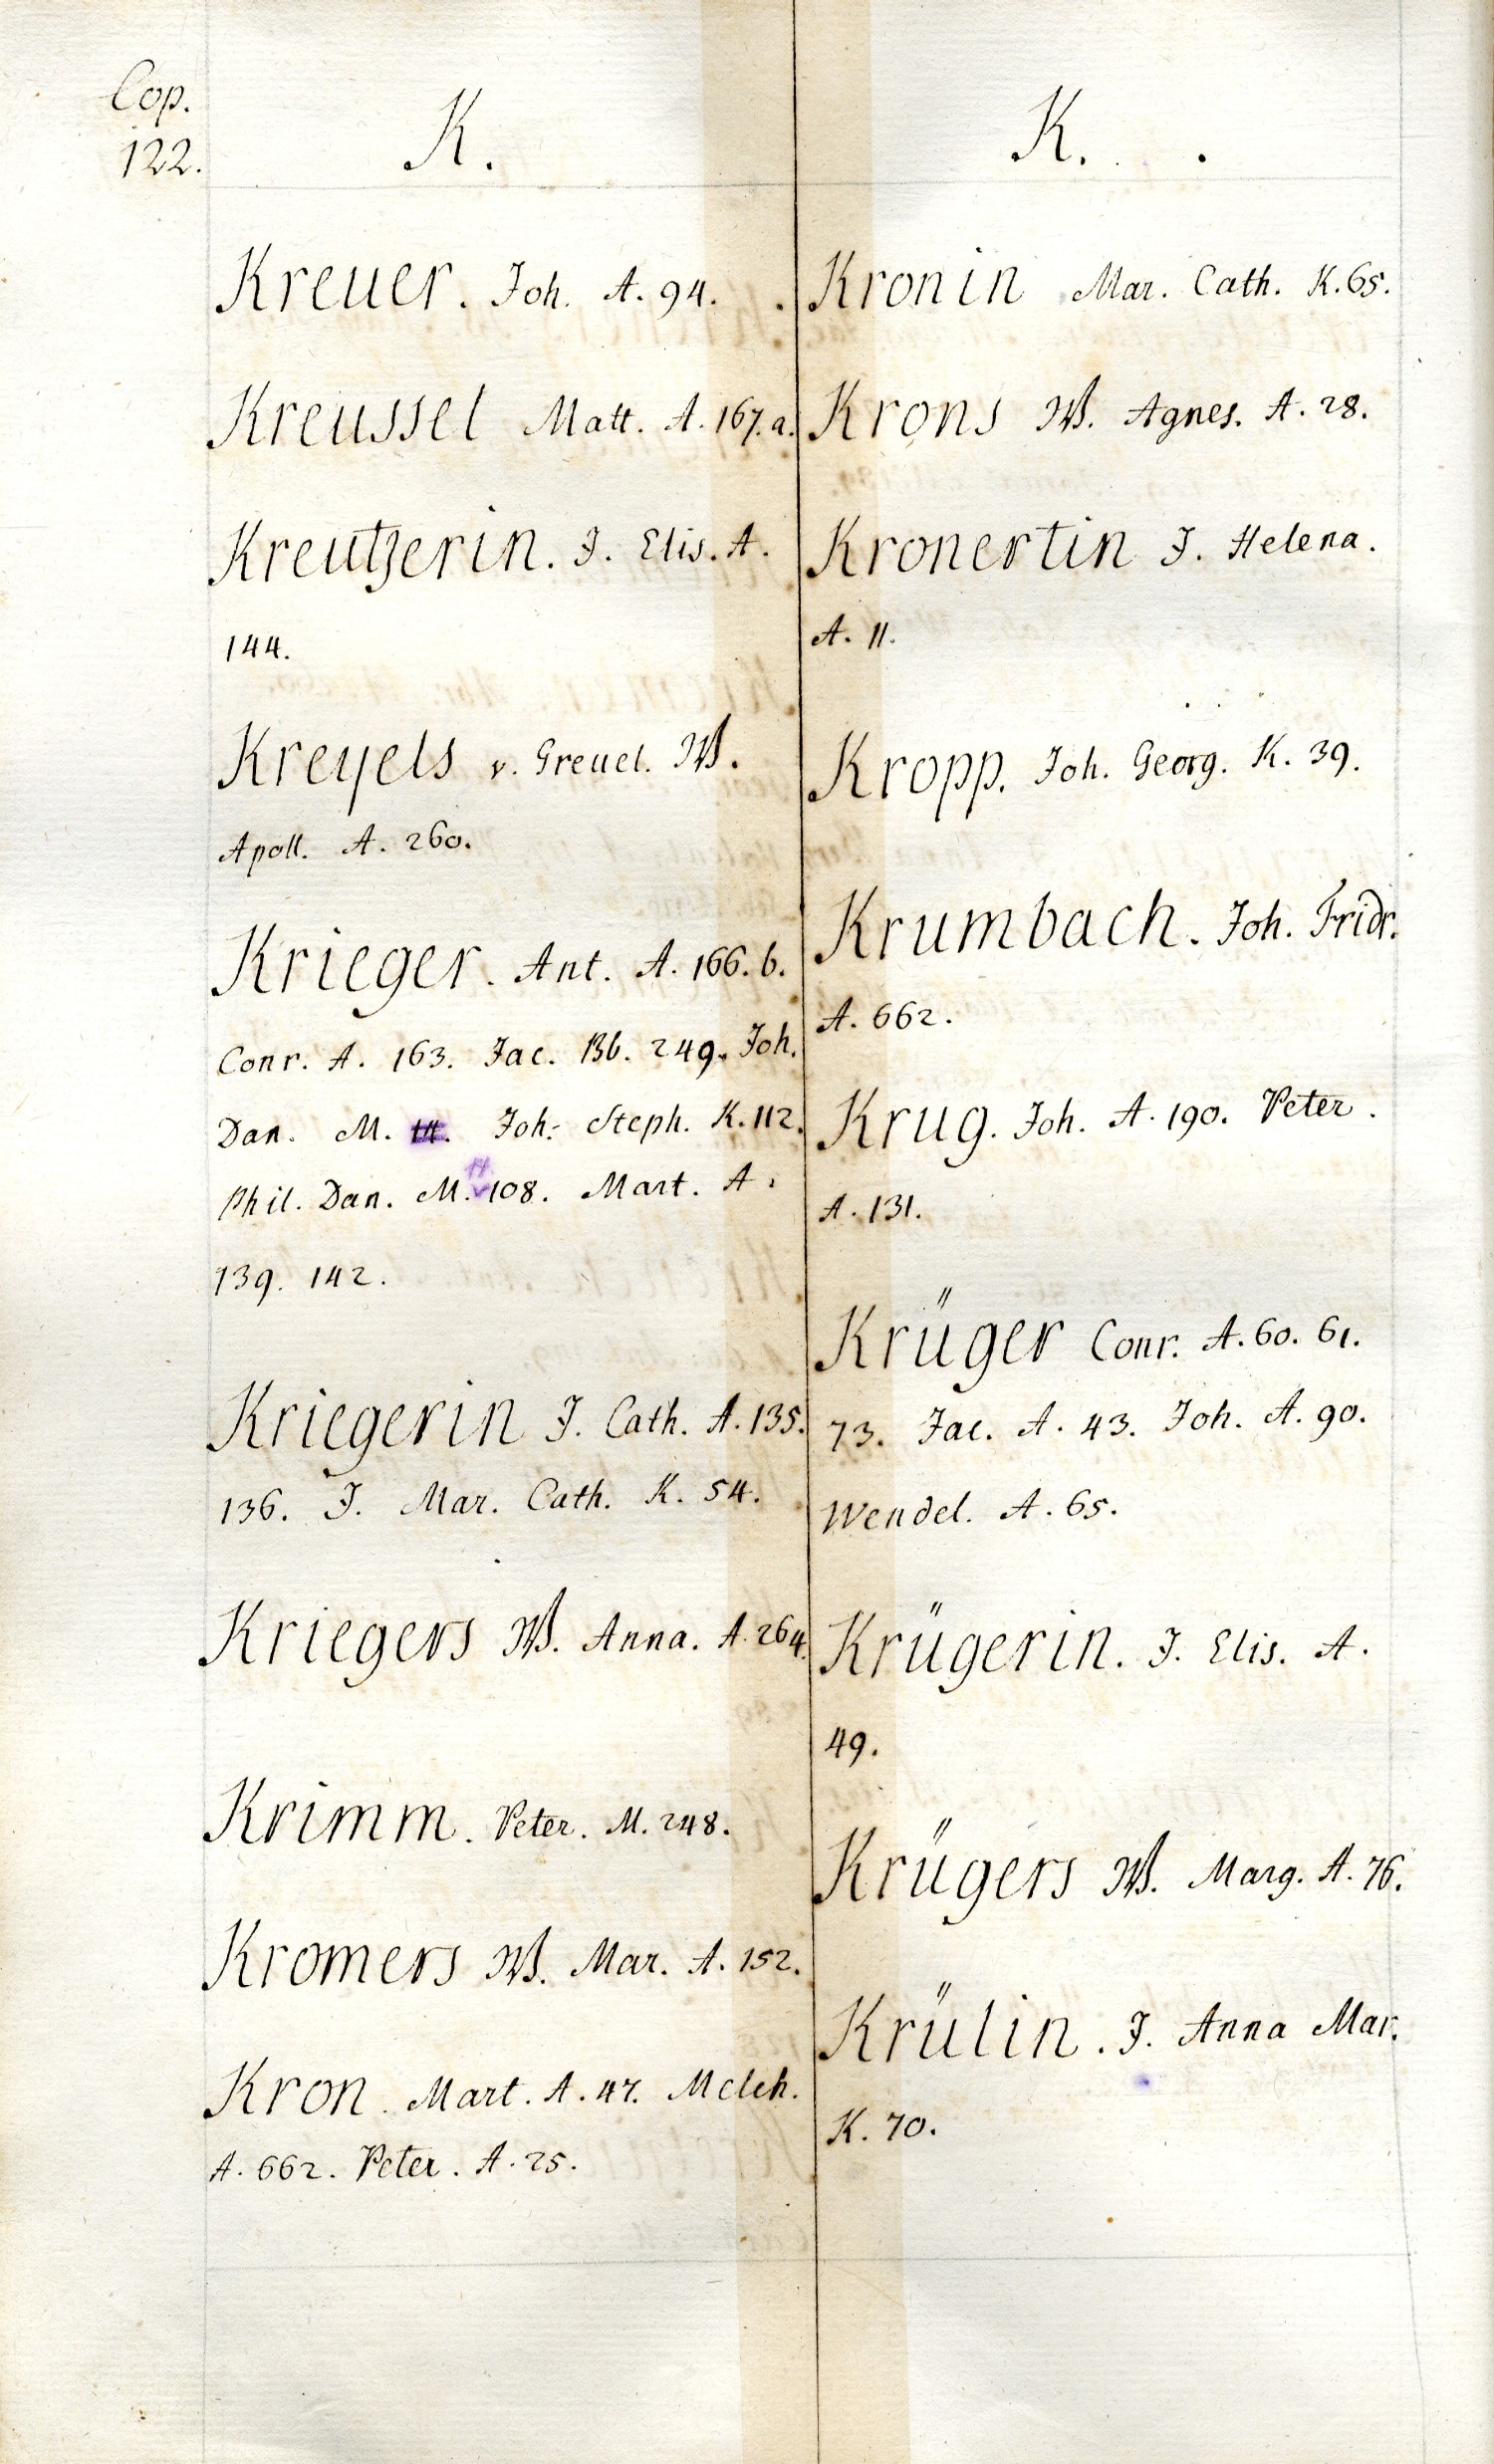 Cop.
122.
K.
Kreuer. Joh. A. 94.
Kreussel Matt. A. 167.a.
Kreutzerin. J. Elis. A.
144.
Kreyels v. Greuel. W.
Apoll. A. 260.
Krieger. Ant. A. 166. b.
Conr. A. 163. Jac. Bb. 249. Joh.
Dan. M. 14. Joh. Steph. K. 112.
14
Phil. Dan. M. 108. Mart. A.
139. 142.
Kriegerin J. Cath. A. 135.
136. J. Mar. Cath. K. 54.
Kriegers W. Anna. A. 264.
Krimm. Peter. M. 248.
Kromers W. Mar. A. 152.
Kron. Mart. A. 47. Melch.
A. 662. Peter. A. 25.
K.
Kronin Mar. Cath. K. 65.
Krons W. Agnes. A. 28.
Kronertin J. Helena.
A. 11.
Kropp. Joh. Georg. K. 39.
Krumbach. Joh. Fridr.
A. 662.
Krug. Joh. A. 190. Peter.
A. 131.
Krüger Conr. A. 60. 61.
73. Jac. A. 43. Joh. A. 90.
Wendel. A. 65.
Krügerin. J. Elis. A.
49.
Krügers W. Marg. A. 76.
Krülin. J. Anna Mar.
K. 70.